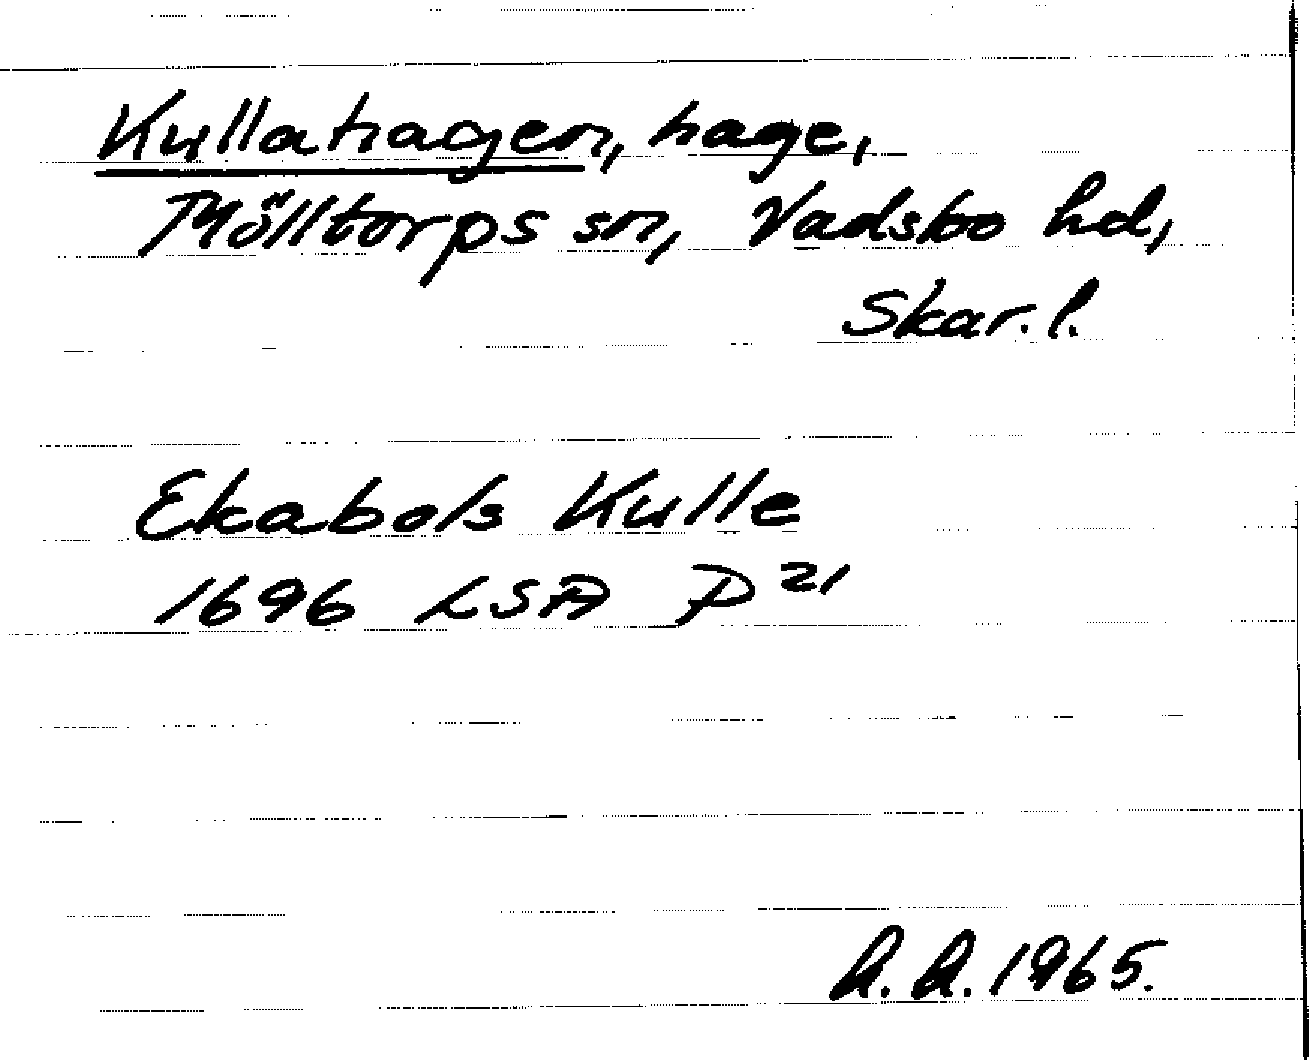 Kullahagen, hage,
Mölltorps sn, Vadsbo hd,
Skar. l.
Ekabols Kulle
1696 LSA P 21
A. A. 1965.